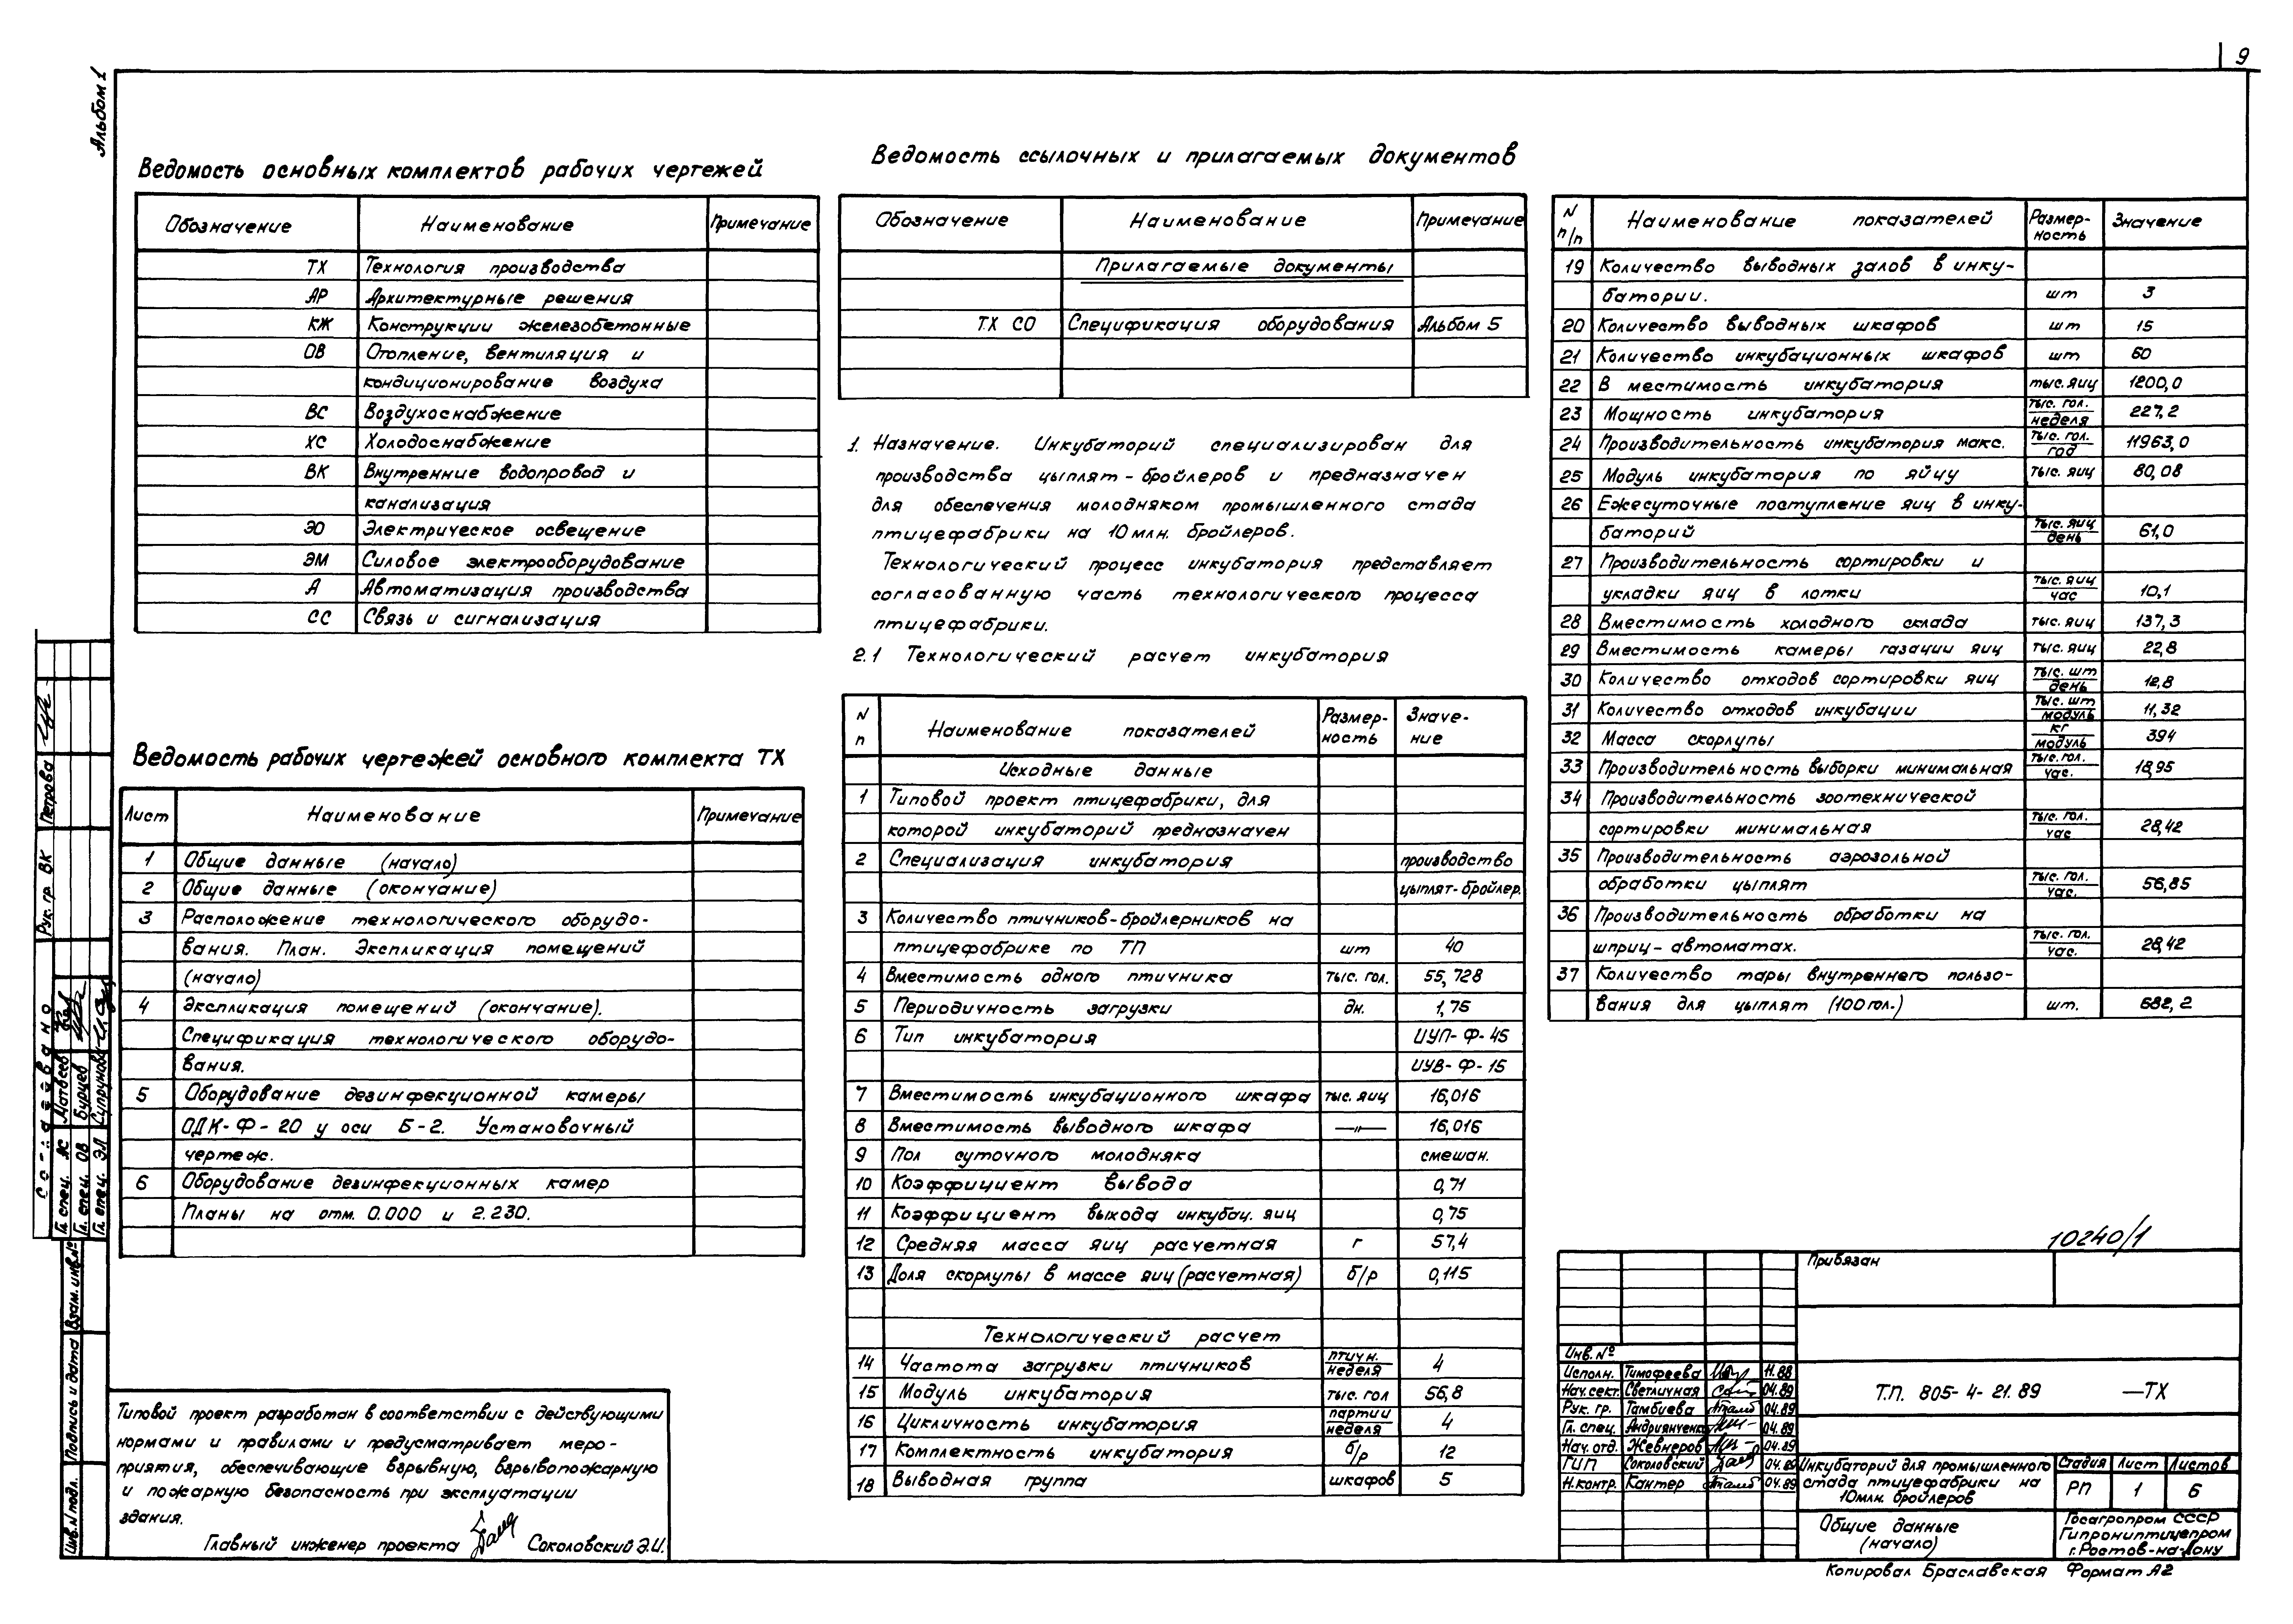 9
Альбом 1
Ведомость основных комплектов рабочих чертежей
Обозначение Наименование Примечание
ТХ Технология производства
АР Архитектурные решения
КЖ Конструкции железобетонные
ОВ Отопление, вентиляция и
кондиционирование воздуха
ВС Воздухоснабжение
ХС Холодоснабжение
ВК Внутренние водопровод и
канализация
ЭО Электрическое освещение
ЭМ Силовое электрооборудование
А Автоматизация производства
СС Связь и сигнализация
Ведомость рабочих чертежей основного комплекта ТХ
Лист Наименование Примечание
1 Общие данные (начало)
2 Общие данные (окончание)
3 Расположение технологического оборудо-
вания. План. Экспликация помещений
(начало)
4 Экспликация помещений (окончание).
Спецификация технологического оборудо-
вания.
5 Оборудование дезинфекционной камеры
ОДК-Ф-20 у оси Б-2. Установочный
чертеж.
6 Оборудование дезинфекционных камер
Планы на отм. 0.000 и 2.230.
Типовой проект разработан в соответствии с действующими
нормами и правилами и предусматривает меро-
приятия, обеспечивающие взрывную, взрывопожарную
и пожарную безопасность при эксплуатации
здания.
Главный инженер проекта Соколовский Э.И.
Ведомость ссылочных и прилагаемых документов
Обозначение Наименование Примечание
Прилагаемые документы
ТХ СО Спецификация оборудования Альбом 5
1. Назначение. Инкубаторий специализирован для
производства цыплят-бройлеров и предназначен
для обеспечения молодняком промышленного стада
птицефабрики на 10 млн. бройлеров.
Технологический процесс инкубатория представляет
согласованную часть технологического процесса
птицефабрики.
2.1 Технологический расчет инкубатория
N п Наименование показателей Размер-ность Значе-ние
Исходные данные
1 Типовой проект птицефабрики, для
которой инкубаторий предназначен
2 Специализация инкубатория производство
цыплят-бройлер.
3 Количество птичников-бройлерников на
птицефабрике по ТП шт 40
4 Вместимость одного птичника тыс. гол. 55,728
5 Периодичность загрузки дн. 1,75
6 Тип инкубатория ИУП-Ф-45
ИУВ-Ф-15
7 Вместимость инкубационного шкафа тыс. яиц 16,016
8 Вместимость выводного шкафа —"— 16,016
9 Пол суточного молодняка смешан.
10 Коэффициент вывода 0,71
11 Коэффициент выхода инкубац. яиц 0,75
12 Средняя масса яиц расчетная г 57,4
13 Доля скорлупы в массе яиц (расчетная) б/р 0,115
Технологический расчет
14 Частота загрузки птичников птичн./неделя 4
15 Модуль инкубатория тыс. гол 56,8
16 Цикличность инкубатория партии/неделя 4
17 Комплектность инкубатория б/р 12
18 Выводная группа шкафов 5
N п/п Наименование показателей Размер-ность Значение
19 Количество выводных залов в инку-
батории. шт 3
20 Количество выводных шкафов шт 15
21 Количество инкубационных шкафов шт 60
22 В местимость инкубатория тыс. яиц 1200,0
23 Мощность инкубатория тыс. гол./неделя 227,2
24 Производительность инкубатория макс. тыс. гол./год 11963,0
25 Модуль инкубатория по яйцу тыс. яиц 80,08
26 Ежесуточные поступление яиц в инку-
баторий тыс. яиц/день 61,0
27 Производительность сортировки и
укладки яиц в лотки тыс. яиц/час 10,1
28 Вместимость холодного склада тыс. яиц 137,3
29 Вместимость камеры газации яиц тыс. яиц 22,8
30 Количество отходов сортировки яиц тыс. шт/день 12,8
31 Количество отходов инкубации тыс. шт/модуль 11,32
32 Масса скорлупы кг/модуль 394
33 Производительность выборки минимальная тыс. гол./час. 18,95
34 Производительность зоотехнической
сортировки минимальная тыс. гол./час 28,42
35 Производительность аэрозольной
обработки цыплят тыс. гол./час. 56,85
36 Производительность обработки на
шприц-автоматах. тыс. гол./час. 28,42
37 Количество тары внутреннего пользо-
вания для цыплят (100 гол.) шт. 682,2
10240/1
Привязан
Инв. №
Исполн. Тимофеева 11.88
Нач. сект. Светличная 04.89
Рук. гр. Тамбиева 04.89
Гл. спец. Андрианченко 04.89
Нач. отд. Жевнеров 04.89
ГИП Соколовский 04.89
Н. контр. Кантер 04.89
Т.П. 805-4-21.89 —ТХ
Инкубаторий для промышленного
стада птицефабрики на
10 млн. бройлеров
Стадия Лист Листов
РП 1 6
Общие данные
(начало)
Госагропром СССР
Гипрониптицепром
г. Ростов-на-Дону
Копировал Браславская Формат А2
Согласовано
Гл. спец. ЖС Матвеев
Гл. спец. ОВ Бурцев
Гл. спец. ЭЛ Супрунова
Рук. гр. ВК Петрова
Взам. инв. №
Подпись и дата
Инв. N подл.